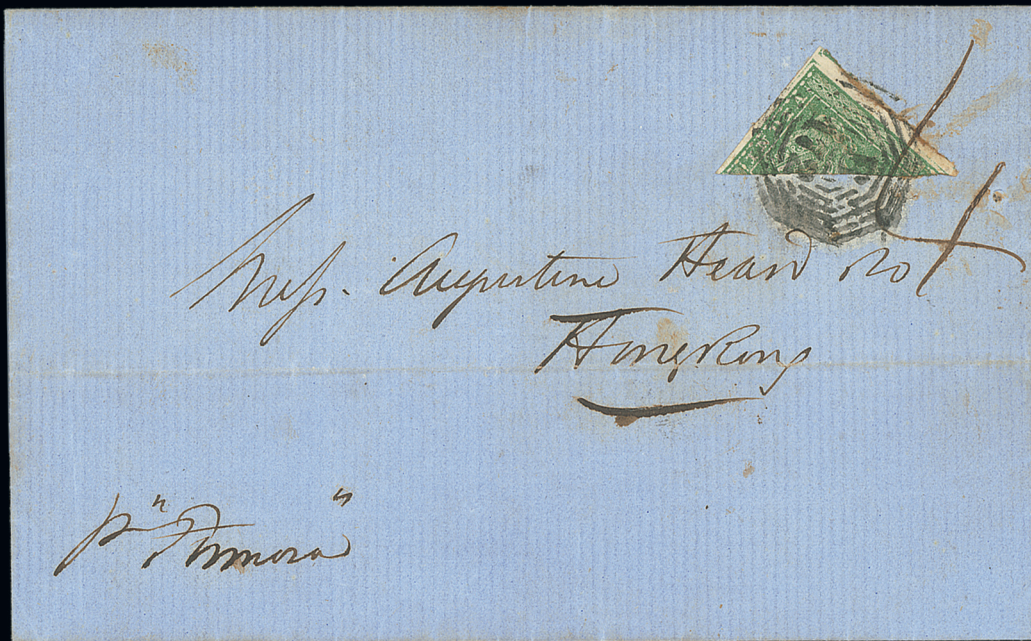 Mess. Augustine Heard & Co
HongKong
pr "Formosa"